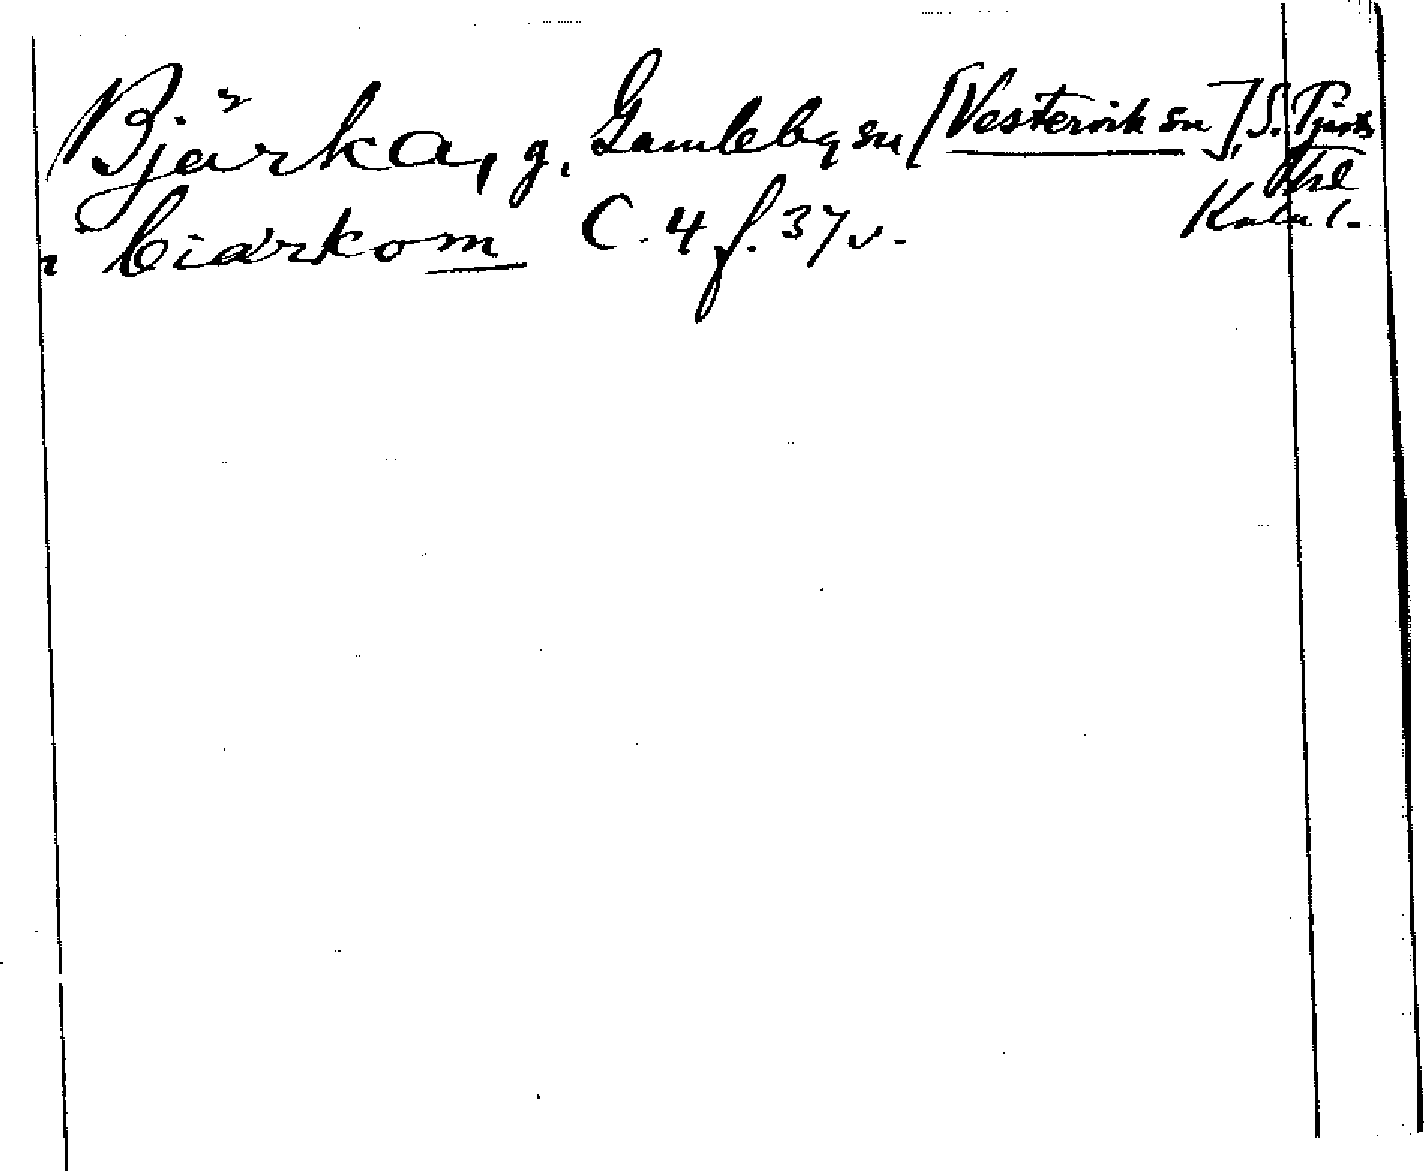 Bjärka, g. Gamleby sn [Vestervik sn], S. Tjusts
hd
i biærkom C. 4 f. 37 v. Kalm l.